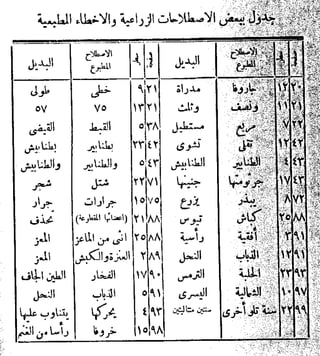 جدول ببعض الاصطلاحات الزراعية والاخطاء المطبعية
صفحة سطر الاصطلاح المطبوع البديل صفحة سطر الاصطلاح المطبوع البديل
٢٠ ١٢ جاروفا مدراة ٢١ ٩ خطى طولى
٢١ ١١ ونصف وثلث ٢١ ١٣ ٧٥ ٥٧
٢٢ ٧ مربع مستطيل ٣٨ ٥ القبط القيضى
٤٢ ١٢ تقلى تشوى ٤٢ ٢٣ بطنابير بطنابيش
٤٣ ٤ الطنابير الطنابيش ٤٣ ٥ والطنابير والطنابيش
٤٣ ١٧ جرثومتها جنينها ٧١ ٢٢ شتل شجر
٧٢ ٨ يبذر يزرع ٧٥ ١٥ جرارات جرار
٨٨ ٢٥ كباش تيوس ٨٨ ٢١ تحذف
٩١ ٣ أفقية رأسية ٨٨ ٢٥ انثى من الماعز المعز
٩١ ١٢ الذباب النحل ٨٩ ٢ العنزة والكبش المعز
٩٣ ٢٣ الحلبة الترمس ٩٠ ١٧ الفخار الطين الجاف
٩٧ ١٠ الشمالية اليسرى ٩١ ٥ الذباب النحل
٩٩ ٢٢ سنة تلو أخرى سنتين متتاليتين ٩٣ ٤ يحركها يتناوب عليها
٩٨ ١٥ خروفا رأسا من الغنم